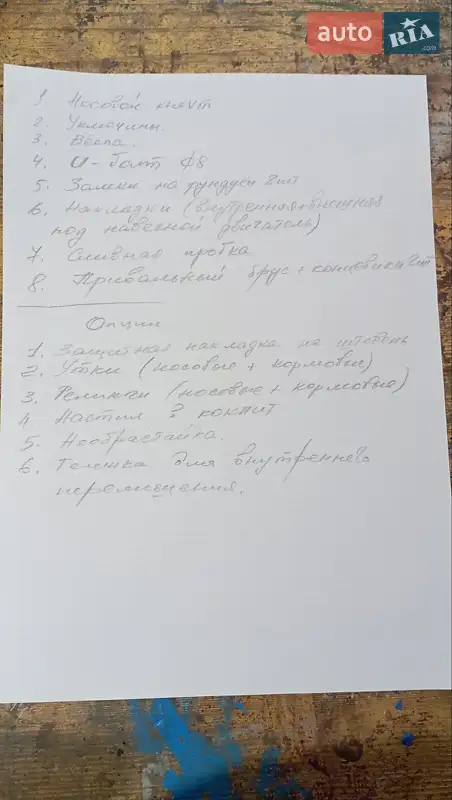 auto RIA .com
1 Носовой кнехт
2. Уключины.
3. Вёсла.
4. U-болт ф8
5. Замки на рундуки 2шт
6. Накладки (внутренняя+внешняя
под навесной двигатель)
7. Сливная пробка
8. Привальный брус + концовики 2шт
Опции
1. Защитная накладка на штевень
2. Утки (носовые + кормовые)
3. Релинги (носовые + кормовые)
4 Настил ? кокпит
5. Необрастайка.
6. Тележка для внутреннего
перемещения.